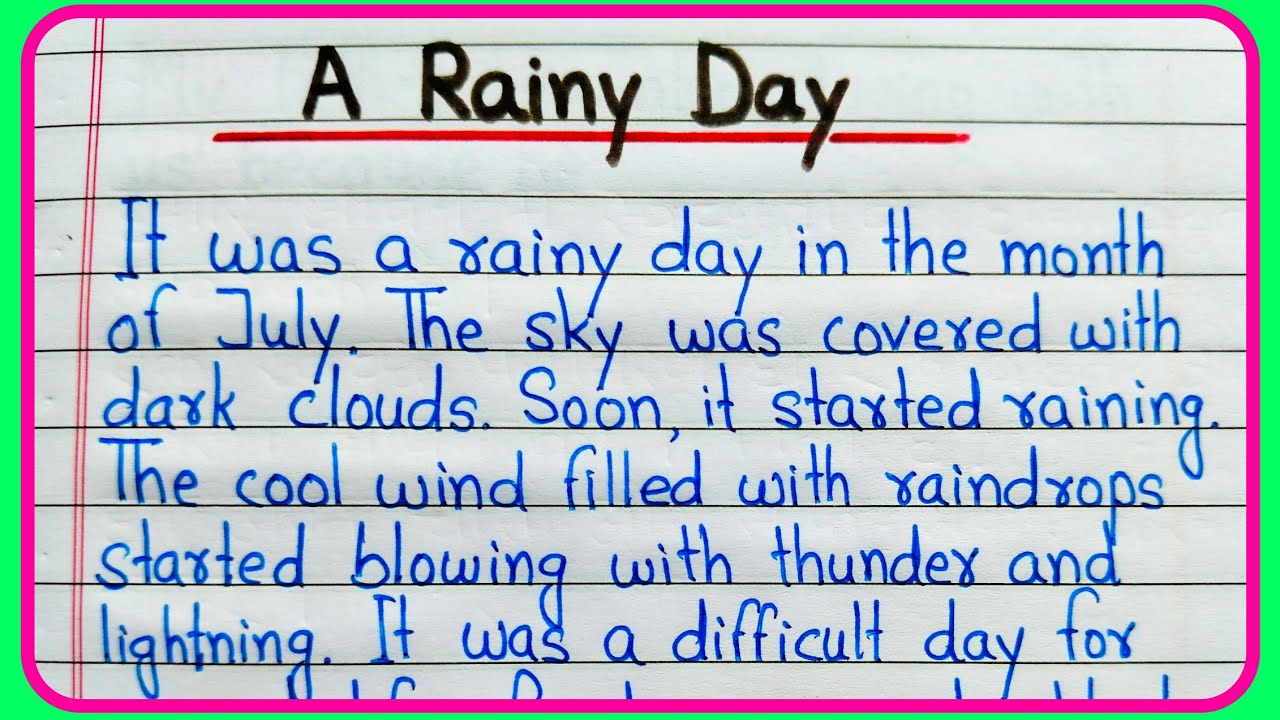 A Rainy Day
It was a rainy day in the month
of July. The sky was covered with
dark clouds. Soon, it started raining.
The cool wind filled with raindrops
started blowing with thunder and
lightning. It was a difficult day for